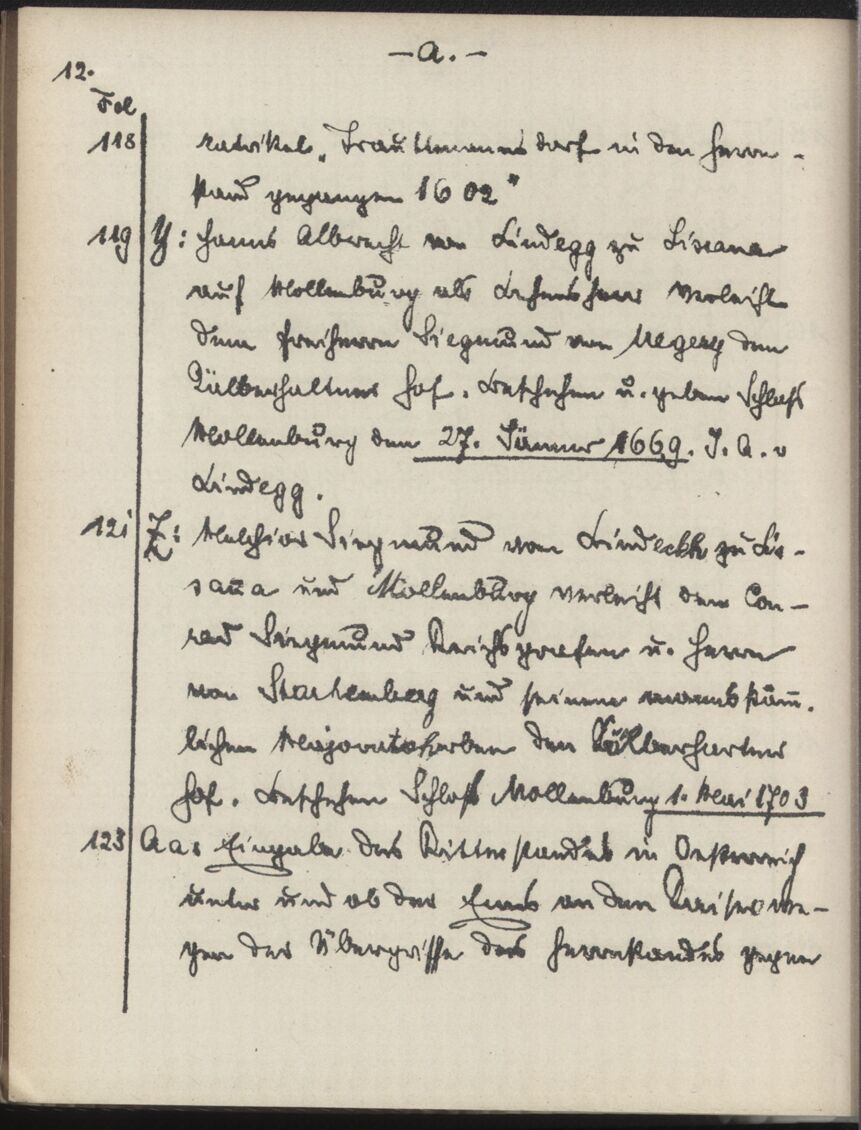 – a. –
12.
Fol
118 matrikel „Trauttmannsdorf in den Herrn-
stand gegangen 1602“
119 Y: Hanns Albrecht von Lindegg zu Lisana
auf Mollenburg als Lehensherr verleiht
dem Freiherrn Siegmund von den
hof. Beschehen u. geben Schloß
Mollenburg den 27. Jänner 1669. J. A. v
Lindegg.
121 Z: Melchior Siegmund von Lindeckh zu Li-
sana und Mollenburg verleiht dem Con-
rad Siegmund Reichsgrafen u. Herrn
von Starhemberg und seinen mannstäm̄-
lichen Majoratserben den
hof. Beschehen Schloß Mollenburg 1. Mai 1703
123 Aa: Eingabe des Ritterstandes in Oesterreich
unter und ob der Enns an den Kaiser we-
gen der Übergriffe des Herrnstandes gegen